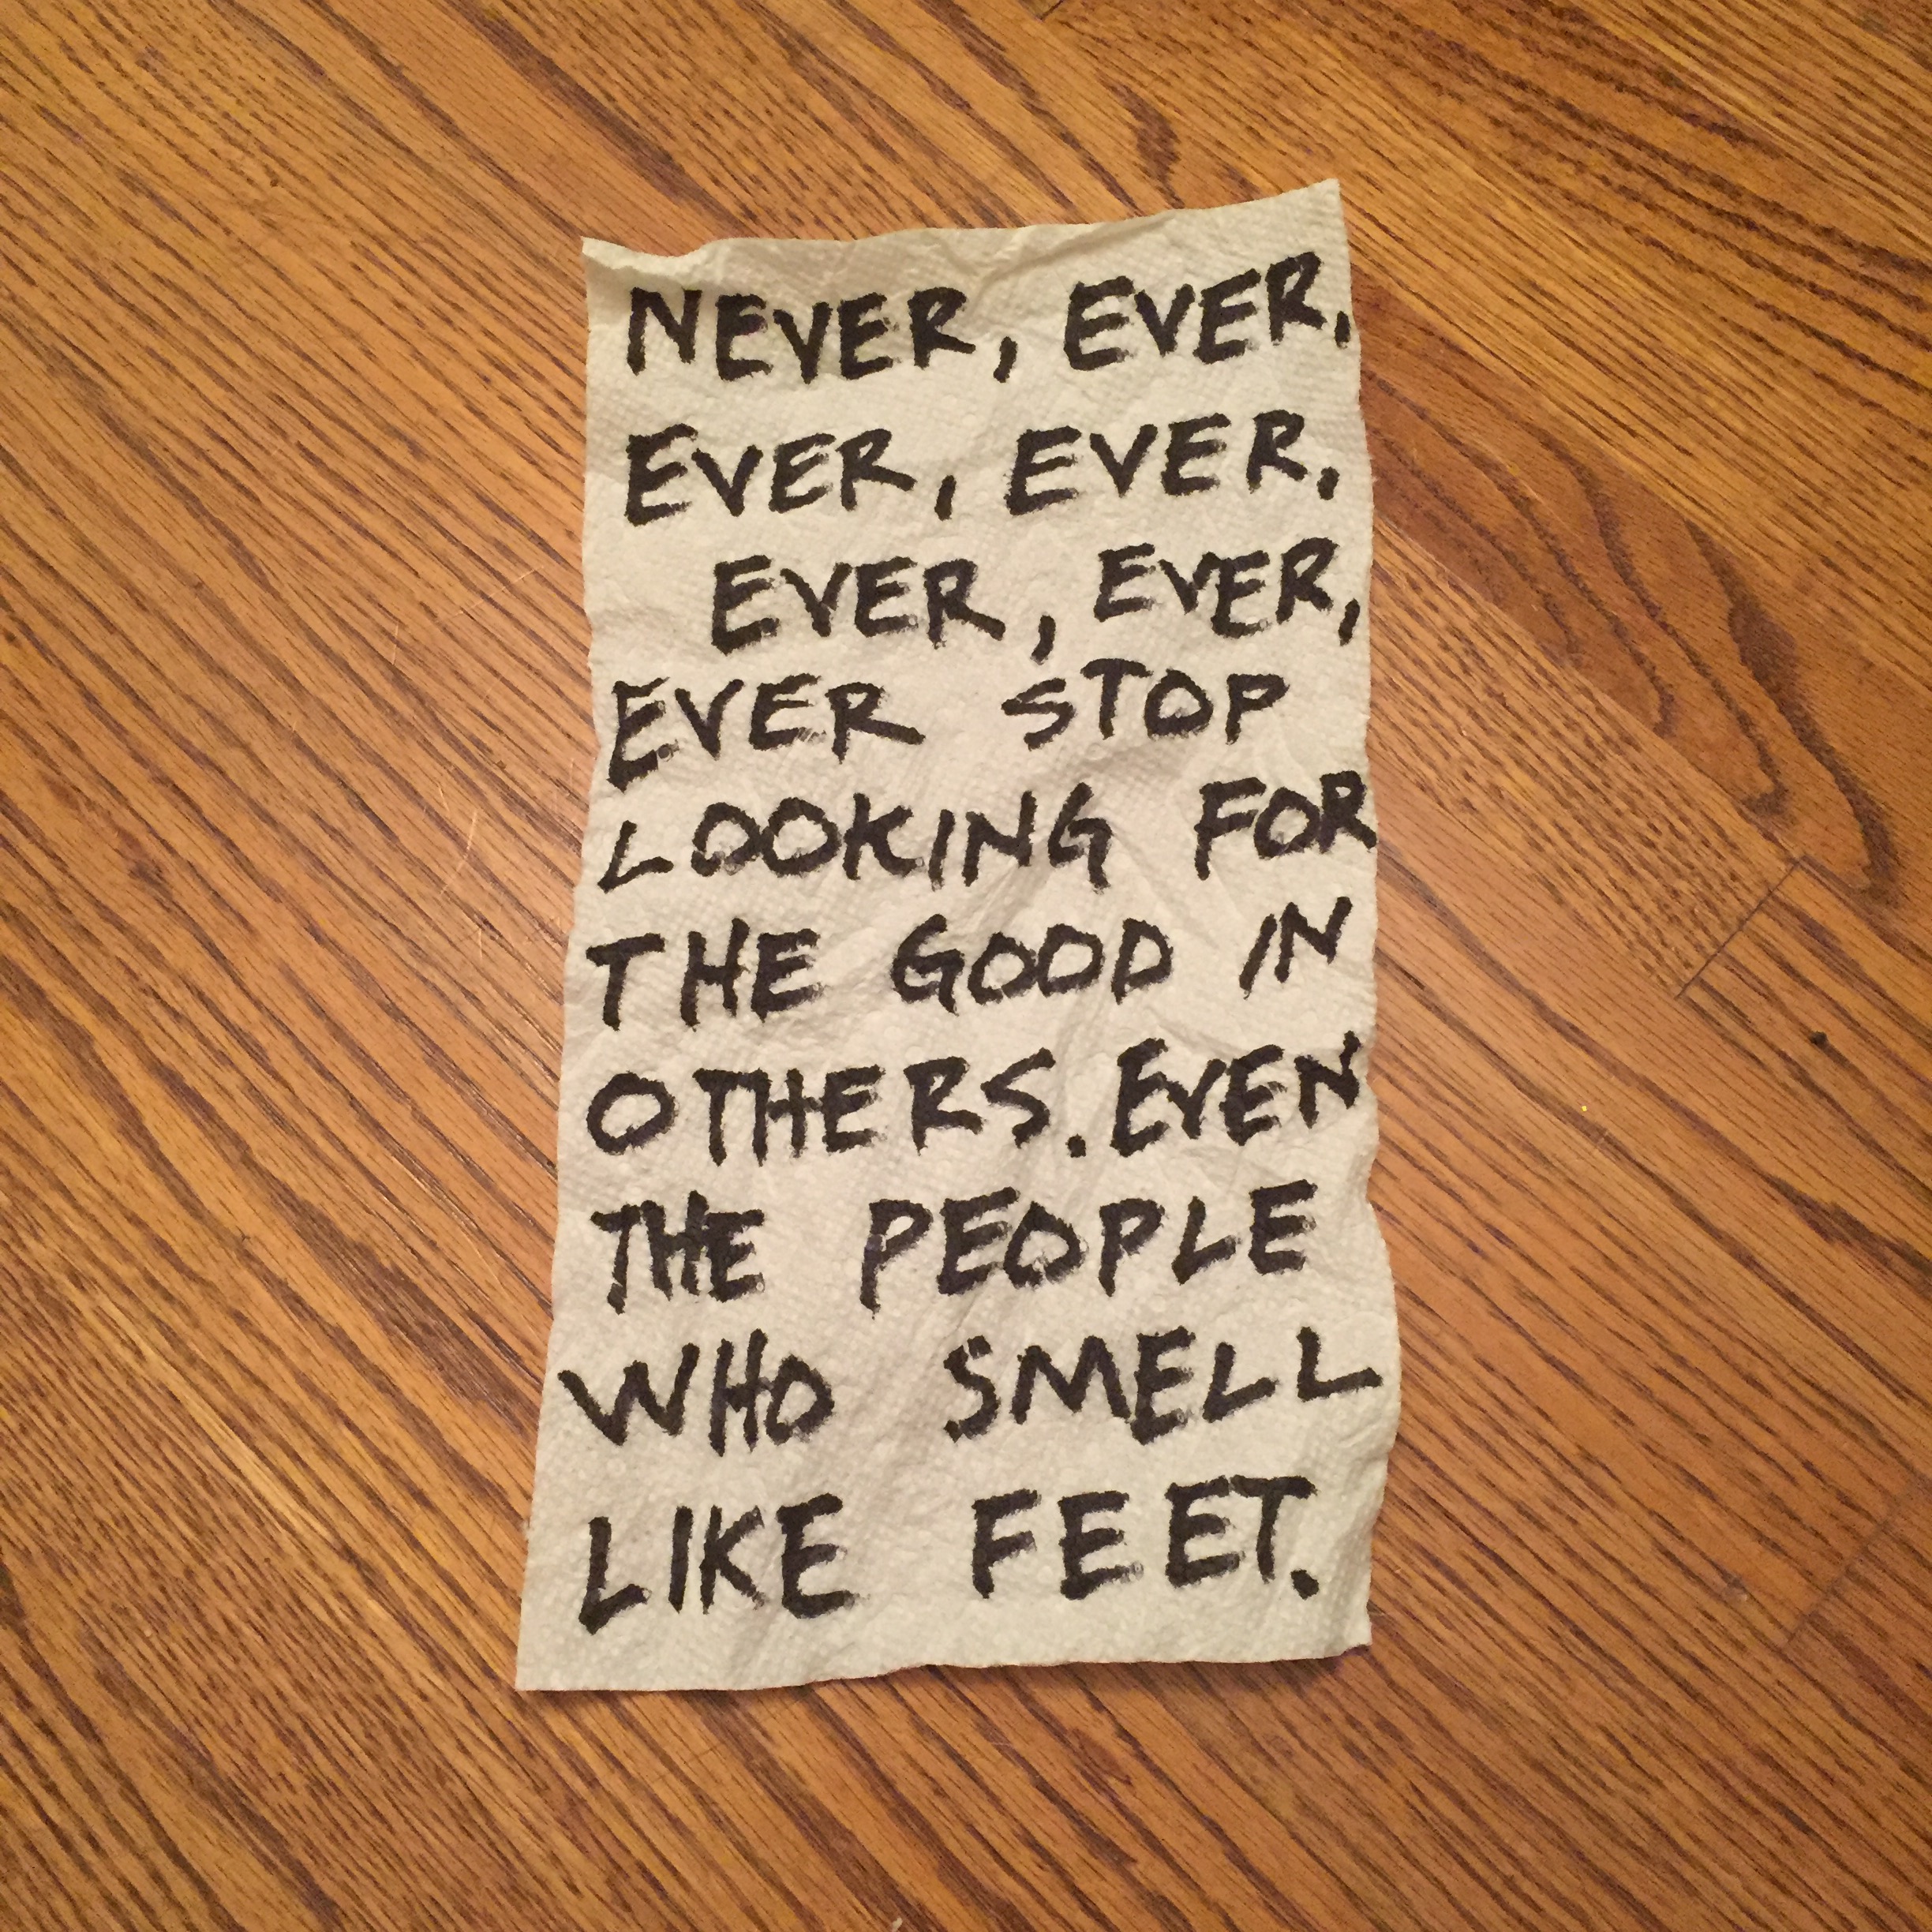 NEVER, EVER,
EVER, EVER,
EVER, EVER,
EVER STOP
LOOKING FOR
THE GOOD IN
OTHERS. EVEN
THE PEOPLE
WHO SMELL
LIKE FEET.